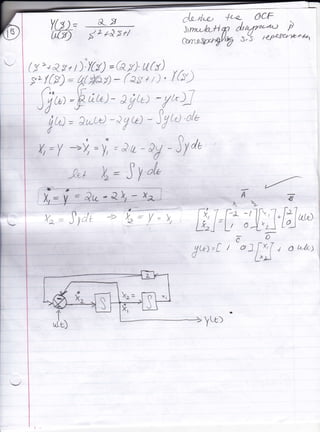 15
Y(s) = 2s
U(s) s²+2s+1
derive the OCF
simulation diagram &
corresponding s.s
(s²+2s+1)Y(s) = (2s)·U(s)
s²Y(s) = U(s)2s - (2s+1)·Y(s)
∫ÿ(t) = ∫[2u̇(t) - 2ẏ(t) - y(t)]
ẏ(t) = 2u(t) - 2y(t) - ∫y(t)·dt
X₁ = Y → Ẋ₁ = Ẏ = 2u - 2y - ∫y dt
let X₂ = ∫y·dt
Ẋ₁ = ẏ = 2u - 2X₁ - X₂
X₂ = ∫y dt ⇒ Ẋ₂ = Y = X₁
A B
[Ẋ₁ Ẋ₂] = [-2 -1 1 0][X₁ X₂] + [2 0]u(t)
C D
y(t) = [1 0][X₁ X₂] + 0 u(t)
2
Ẋ₂ ∫ X₂ = Ẋ₁ ∫ X₁
u(t)
Y(t)